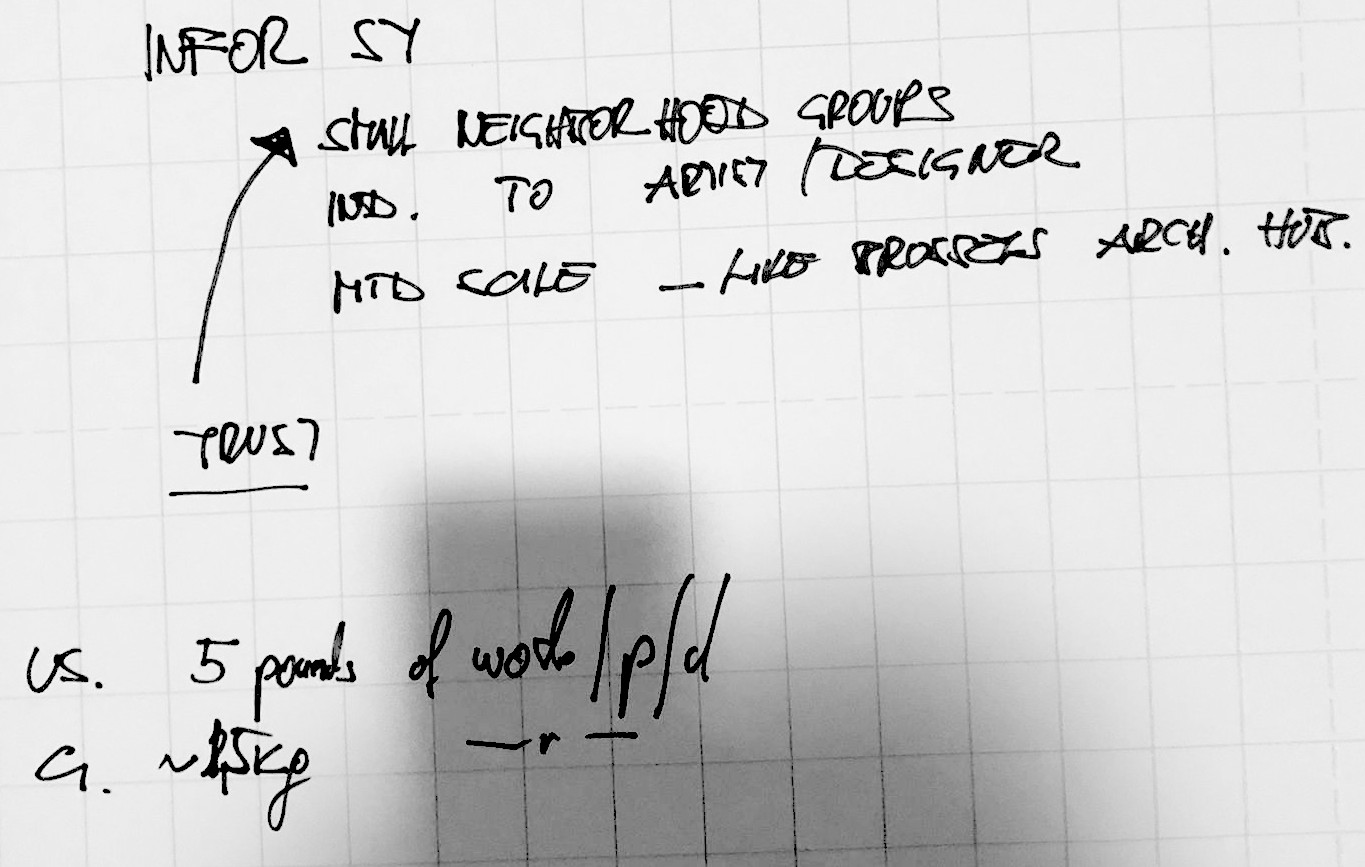 INFOR SY
SMALL NEIGHBORHOOD GROUPS
IND. TO ARTIST / DESIGNER
MID SCALE – LIKE BRUSSELS ARCH. HUB.
TRUST
US. 5 pounds of /p/d
G. ~1,5Kg — r —